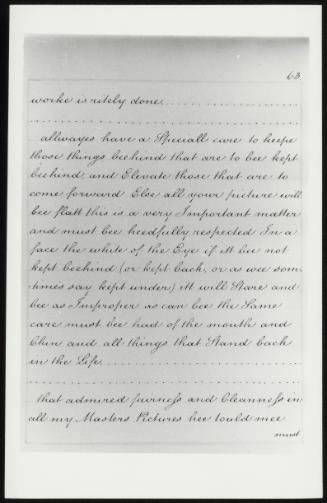 63.
worke is ritely done
allwayes have a Speciall care to keepe
those things beehind that are to bee kept
beehind and Elevate those that are to
come forward Else all your picture will
bee flatt this is a very Important matter
and must bee heedfully respected In a
face the white of the Eye if itt bee not
kept beehind (or kept back, or as wee som-
times say kept under) itt will Stare and
bee as Improper as can bee the Same
care must bee had of the mouth and
Chin and all things that Stand back
in the Life
that admired fairness and Cleanness in
all my Masters Pictures hee tould mee
must